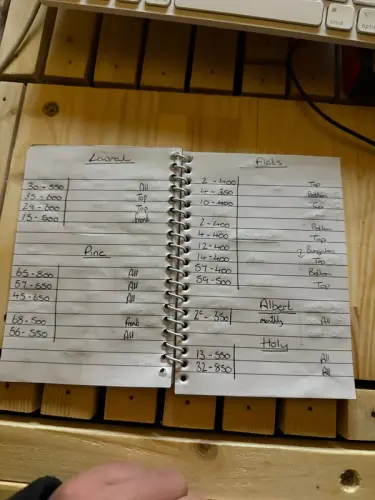 Laural
30 - 550 All
35 - 600 Top
29 - 600 Top
15 - 500 front
Pine
65 - 800 All
57 - 650 All
45 - 650 All
68 - 500 front
56 - 550 All
Flats
2 - 400 Top
4 - 350 Bottom
10 - 400 Top
2 - 400 Bottom
4 - 400 Top
12 - 400 Bungalow
14 - 400 Top
57 - 400 Bottom
59 - 500 Top
Albert
- 350 monthly All
Holy
13 - 550 All
32 - 850 All
cmd